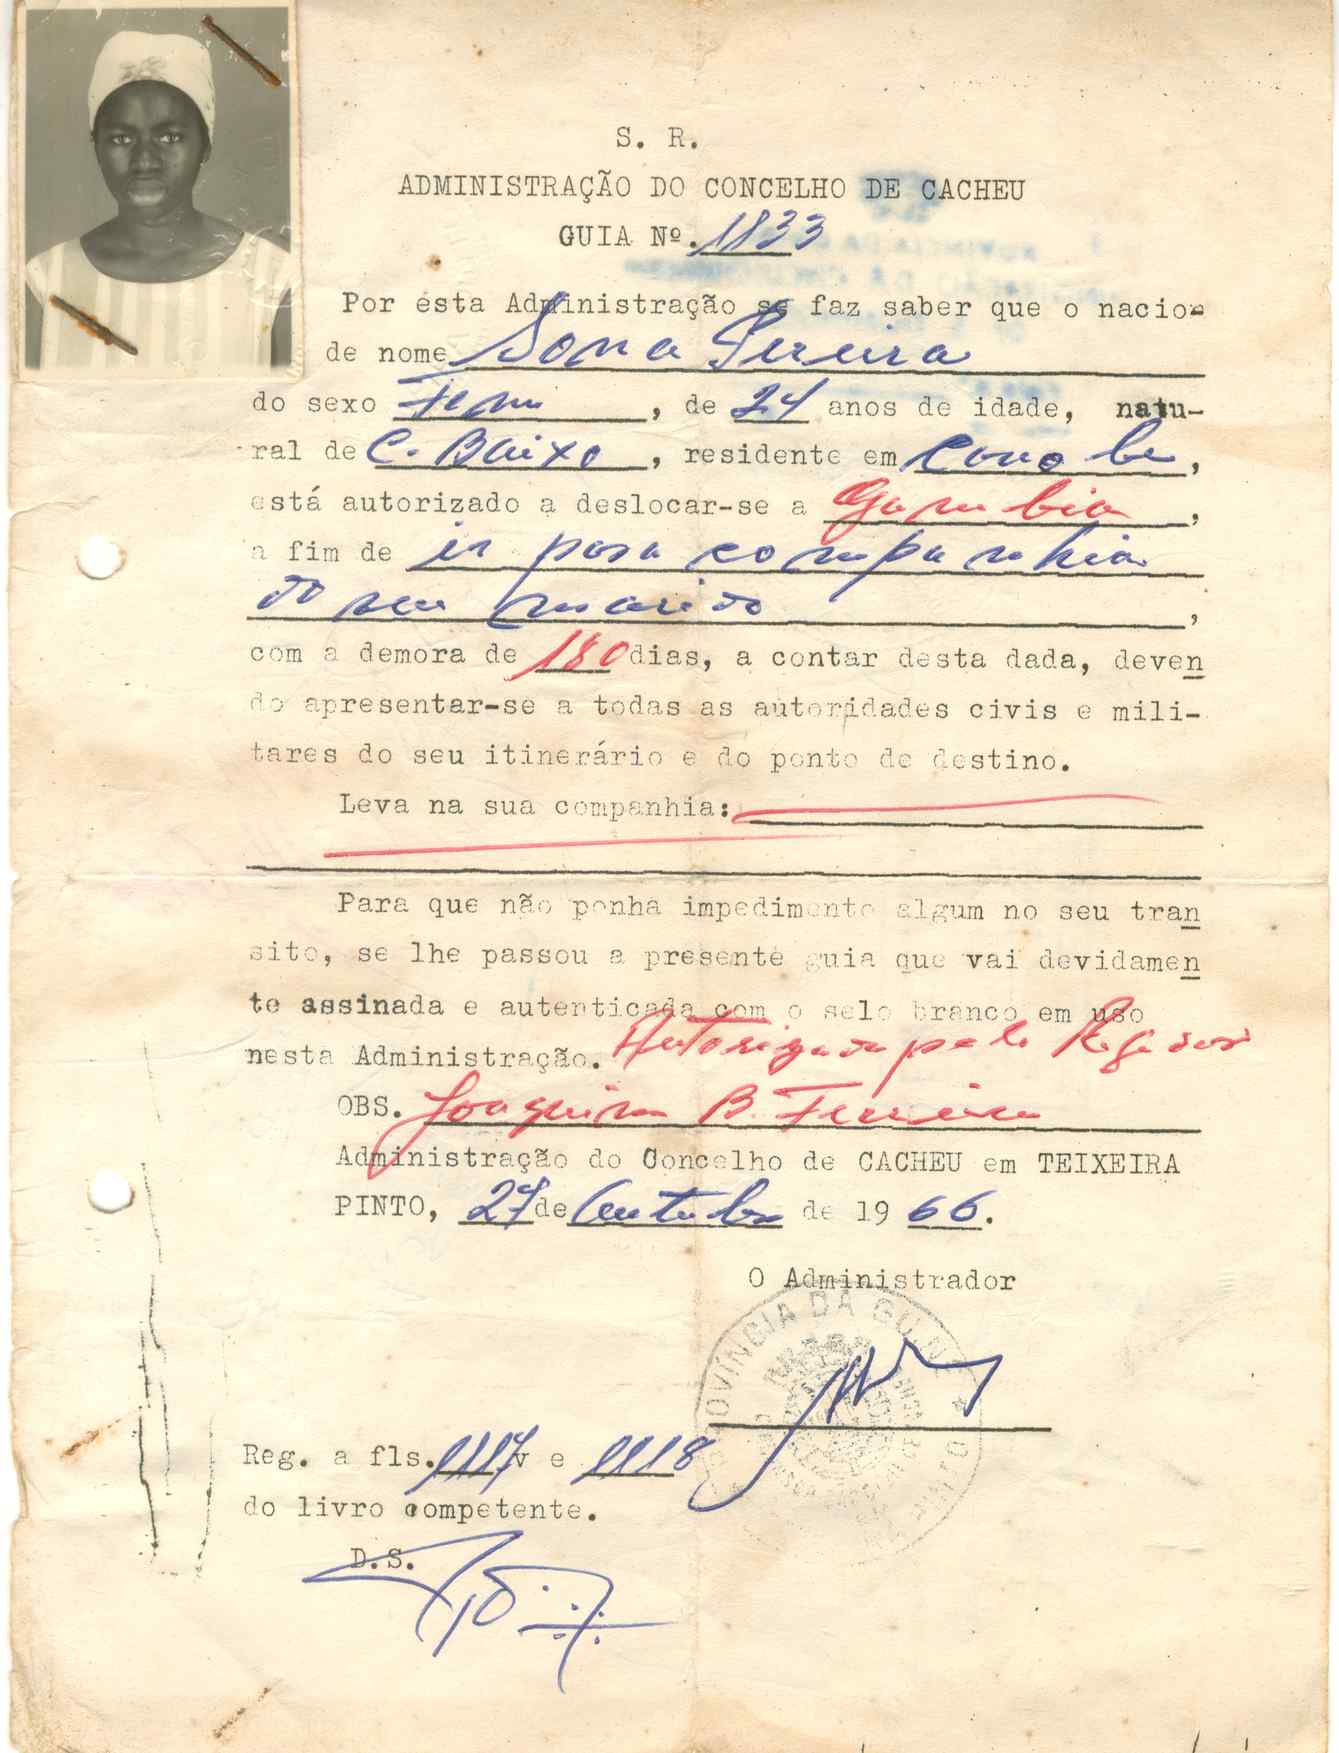 S. R.
ADMINISTRAÇÃO DO CONCELHO DE CACHEU
GUIA Nº. 1833
Por esta Administração se faz saber que o nacio-
de nome Sona Pereira
do sexo Fem, de 24 anos de idade, natu-
ral de C. Baixo, residente em
está autorizado a deslocar-se a Gambia,
a fim de ir para companhia
do seu marido,
com a demora de 180 dias, a contar desta dada, deven
do apresentar-se a todas as autoridades civis e mili-
tares do seu itinerário e do ponto de destino.
Leva na sua companhia:
Para que não ponha impedimento algum no seu tran
sito, se lhe passou a presente guia que vai devidamen
te assinada e autenticada com o selo branco em uso
nesta Administração. Autorizada pelo Regedor
OBS. Joaquim B. Ferreira
Administração do Concelho de CACHEU em TEIXEIRA
PINTO, 27 de Outubro de 19 66.
O Administrador
PROVÍNCIA DA GUINÉ
Reg. a fls. 1117v e 1118
do livro competente.
D.S.